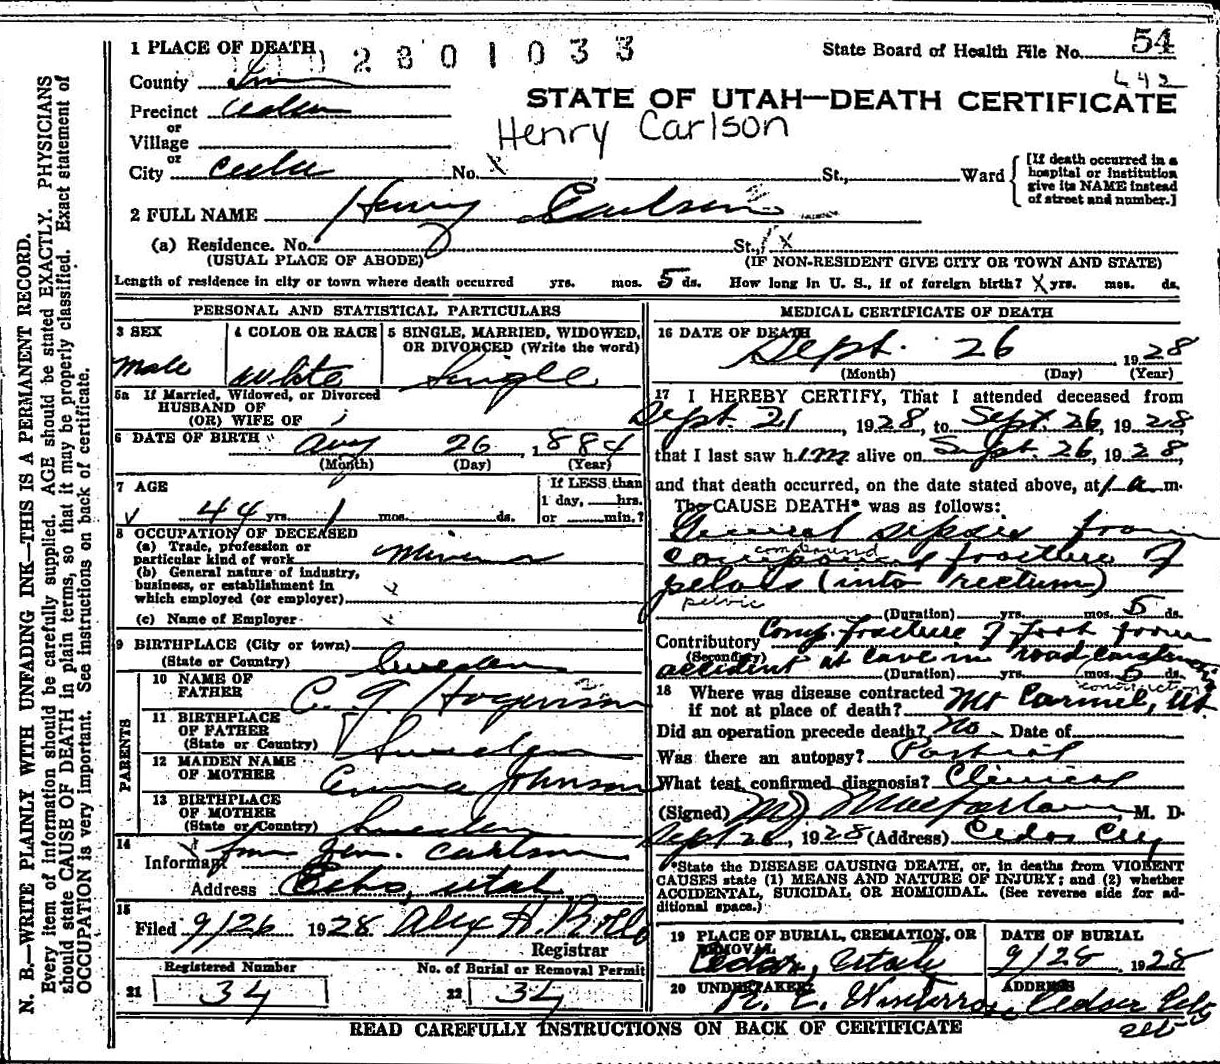 1 PLACE OF DEATH
2 8 0 1 0 3 3
State Board of Health File No. 54
County Iron
642
STATE OF UTAH—DEATH CERTIFICATE
Precinct Cedar
or
Village
Henry Carlson
or
City Cedar No. X St., Ward
[If death occurred in a
hospital or institution
give its NAME instead
of street and number.]
2 FULL NAME Henry Carlson
(a) Residence. No. St., X
(USUAL PLACE OF ABODE) (IF NON-RESIDENT GIVE CITY OR TOWN AND STATE)
Length of residence in city or town where death occurred yrs. mos. 5 ds. How long in U. S., if of foreign birth? X yrs. mos. ds.
PERSONAL AND STATISTICAL PARTICULARS
3 SEX
Male
4 COLOR OR RACE
White
5 SINGLE, MARRIED, WIDOWED,
OR DIVORCED (Write the word)
Single
5a If Married, Widowed, or Divorced
HUSBAND OF
(OR) WIFE OF
6 DATE OF BIRTH Aug 26, 1884
(Month) (Day) (Year)
7 AGE
44 yrs. 1 mos. ds.
If LESS than
1 day, hrs.
or min.?
8 OCCUPATION OF DECEASED
(a) Trade, profession or
particular kind of work Miner
(b) General nature of industry,
business, or establishment in
which employed (or employer)
(c) Name of Employer
9 BIRTHPLACE (City or town)
(State or Country) Sweden
PARENTS
10 NAME OF
FATHER C. G.
11 BIRTHPLACE
OF FATHER
(State or Country) Sweden
12 MAIDEN NAME
OF MOTHER Emma Johnson
13 BIRTHPLACE
OF MOTHER
(State or Country) Sweden
14
Informant Carlson
Address Echo, Utah
15
Filed 9/26 1928 Alex H.
Registrar
Registered Number
21 34
No. of Burial or Removal Permit
22 34
MEDICAL CERTIFICATE OF DEATH
16 DATE OF DEATH
Sept. 26 1928
(Month) (Day) (Year)
17 I HEREBY CERTIFY, That I attended deceased from
Sept. 21, 1928, to Sept. 26, 1928,
that I last saw him alive on Sept. 26, 1928,
and that death occurred, on the date stated above, at 1 a m.
The CAUSE DEATH* was as follows:
General sepsis from
compound
compound fracture of
pelvis (into rectum)
pelvic
(Duration) yrs. mos. 5 ds.
Contributory Comp. fracture of foot from
(Secondary)
accident at cave in road
(Duration) mos. 5
construction
18 Where was disease contracted
if not at place of death? Mt Carmel, Ut.
Did an operation precede death? No Date of
Was there an autopsy? Partial
What test confirmed diagnosis? Clinical
(Signed) M J Macfarlane M. D.
Sept 26, 1928 (Address) Cedar City
*State the DISEASE CAUSING DEATH, or, in deaths from VIOLENT
CAUSES state (1) MEANS AND NATURE OF INJURY; and (2) whether
ACCIDENTAL, SUICIDAL OR HOMICIDAL. (See reverse side for ad-
ditional space.)
19 PLACE OF BURIAL, CREMATION, OR
REMOVAL
Cedar,
DATE OF BURIAL
9/28 1928
20 UNDERTAKER
ADDRESS
Cedar City
READ CAREFULLY INSTRUCTIONS ON BACK OF CERTIFICATE
N. B.—WRITE PLAINLY WITH UNFADING INK—THIS IS A PERMANENT RECORD.
Every item of information should be carefully supplied. AGE should be stated EXACTLY. PHYSICIANS
should state CAUSE OF DEATH in plain terms, so that it may be properly classified. Exact statement of
OCCUPATION is very important. See instructions on back of certificate.